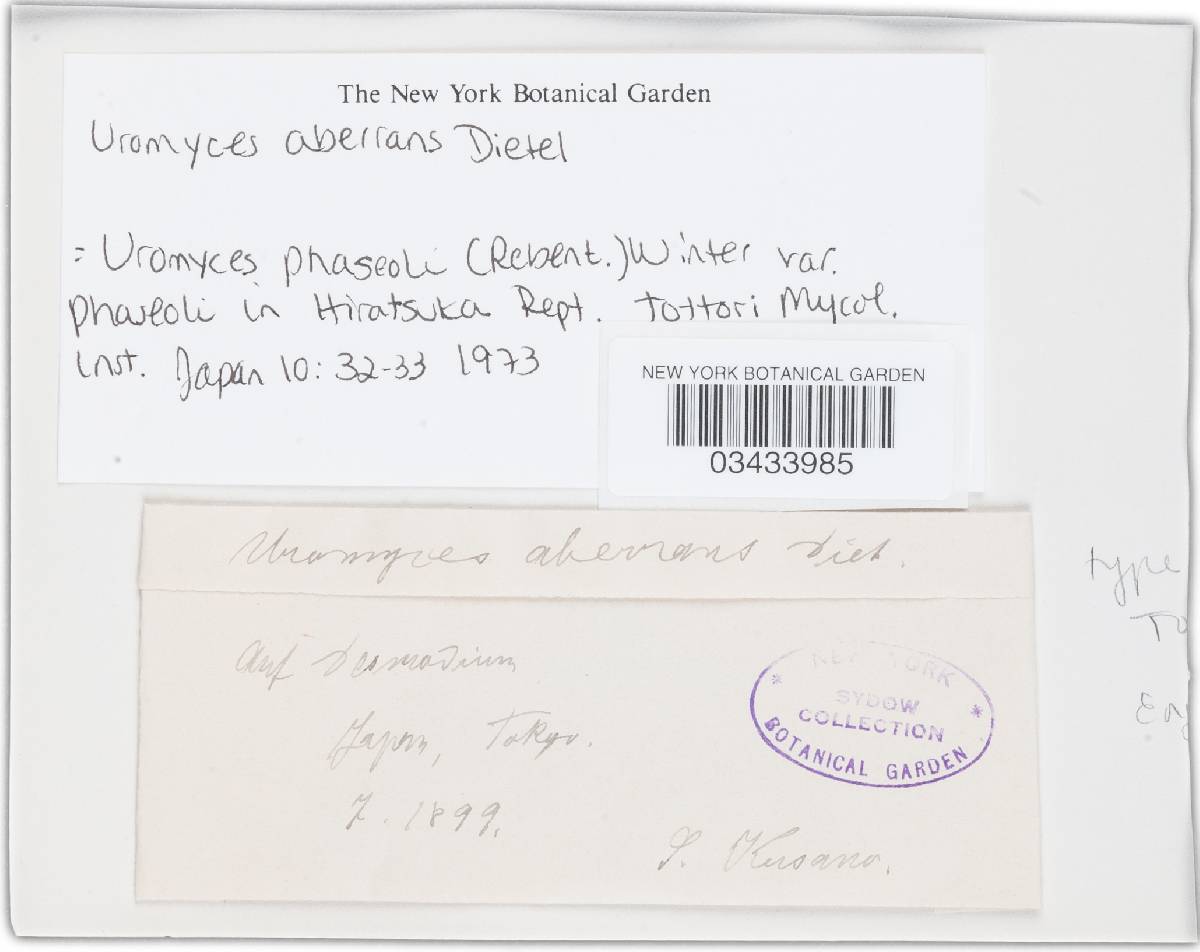 The New York Botanical Garden
Uromyces aberrans Dietel
= Uromyces phaseoli (Rebent.) Winter var.
phaseoli in Hiratsuka Rept. Tottori Mycol.
Inst. Japan 10: 32-33 1973
NEW YORK BOTANICAL GARDEN
03433985
Uromyces aberrans Diet.
type
To
Auf Desmodium
Japan, Tokyo.
7. 1899.
S. Kusano.
NEW YORK
SYDOW
COLLECTION
BOTANICAL GARDEN